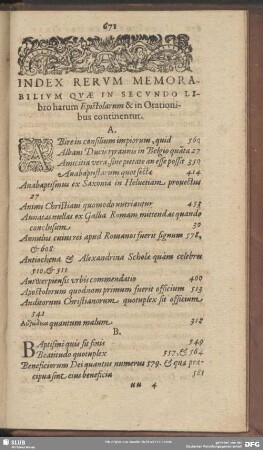 671
INDEX RERVM MEMORA-
BILIVM QVÆ IN SECVNDO LI-
bro harum Epistolarum & in Orationi-
bus continentur.
A.
Abire in consilium impiorum, quid 560
Albani Ducis tyrannis in Belgio quāta 27
Amicitia vera, sine pietate an esse possit 350
Anabaptistarum quot sectæ 414
Anabaptismus ex Saxonia in Helvetiam provectus
27
Animi Christiani quomodo nutriantur 453
Annatas nullas ex Gallia Romam mittendas quando
conclusum 30
Annulus cuius rei apud Romanos fuerit signum 578,
& 608
Antiochena & Alexandrina Scholæ quàm celebres
510. & 511
Antwerpiensis vrbis commendatio 460
Apostolorum quodnam primum fuerit officium 513
Auditorum Christianorum quotuplex sit officium
541
quantum malum 312
B.
Baptismi quis sit finis 549
Beatitudo quotuplex 557. & 564
Beneficiorum Dei quantus numerus 579. & quæ præ-
cipua sint eius beneficia 581
uu 4
SLUB
DFG